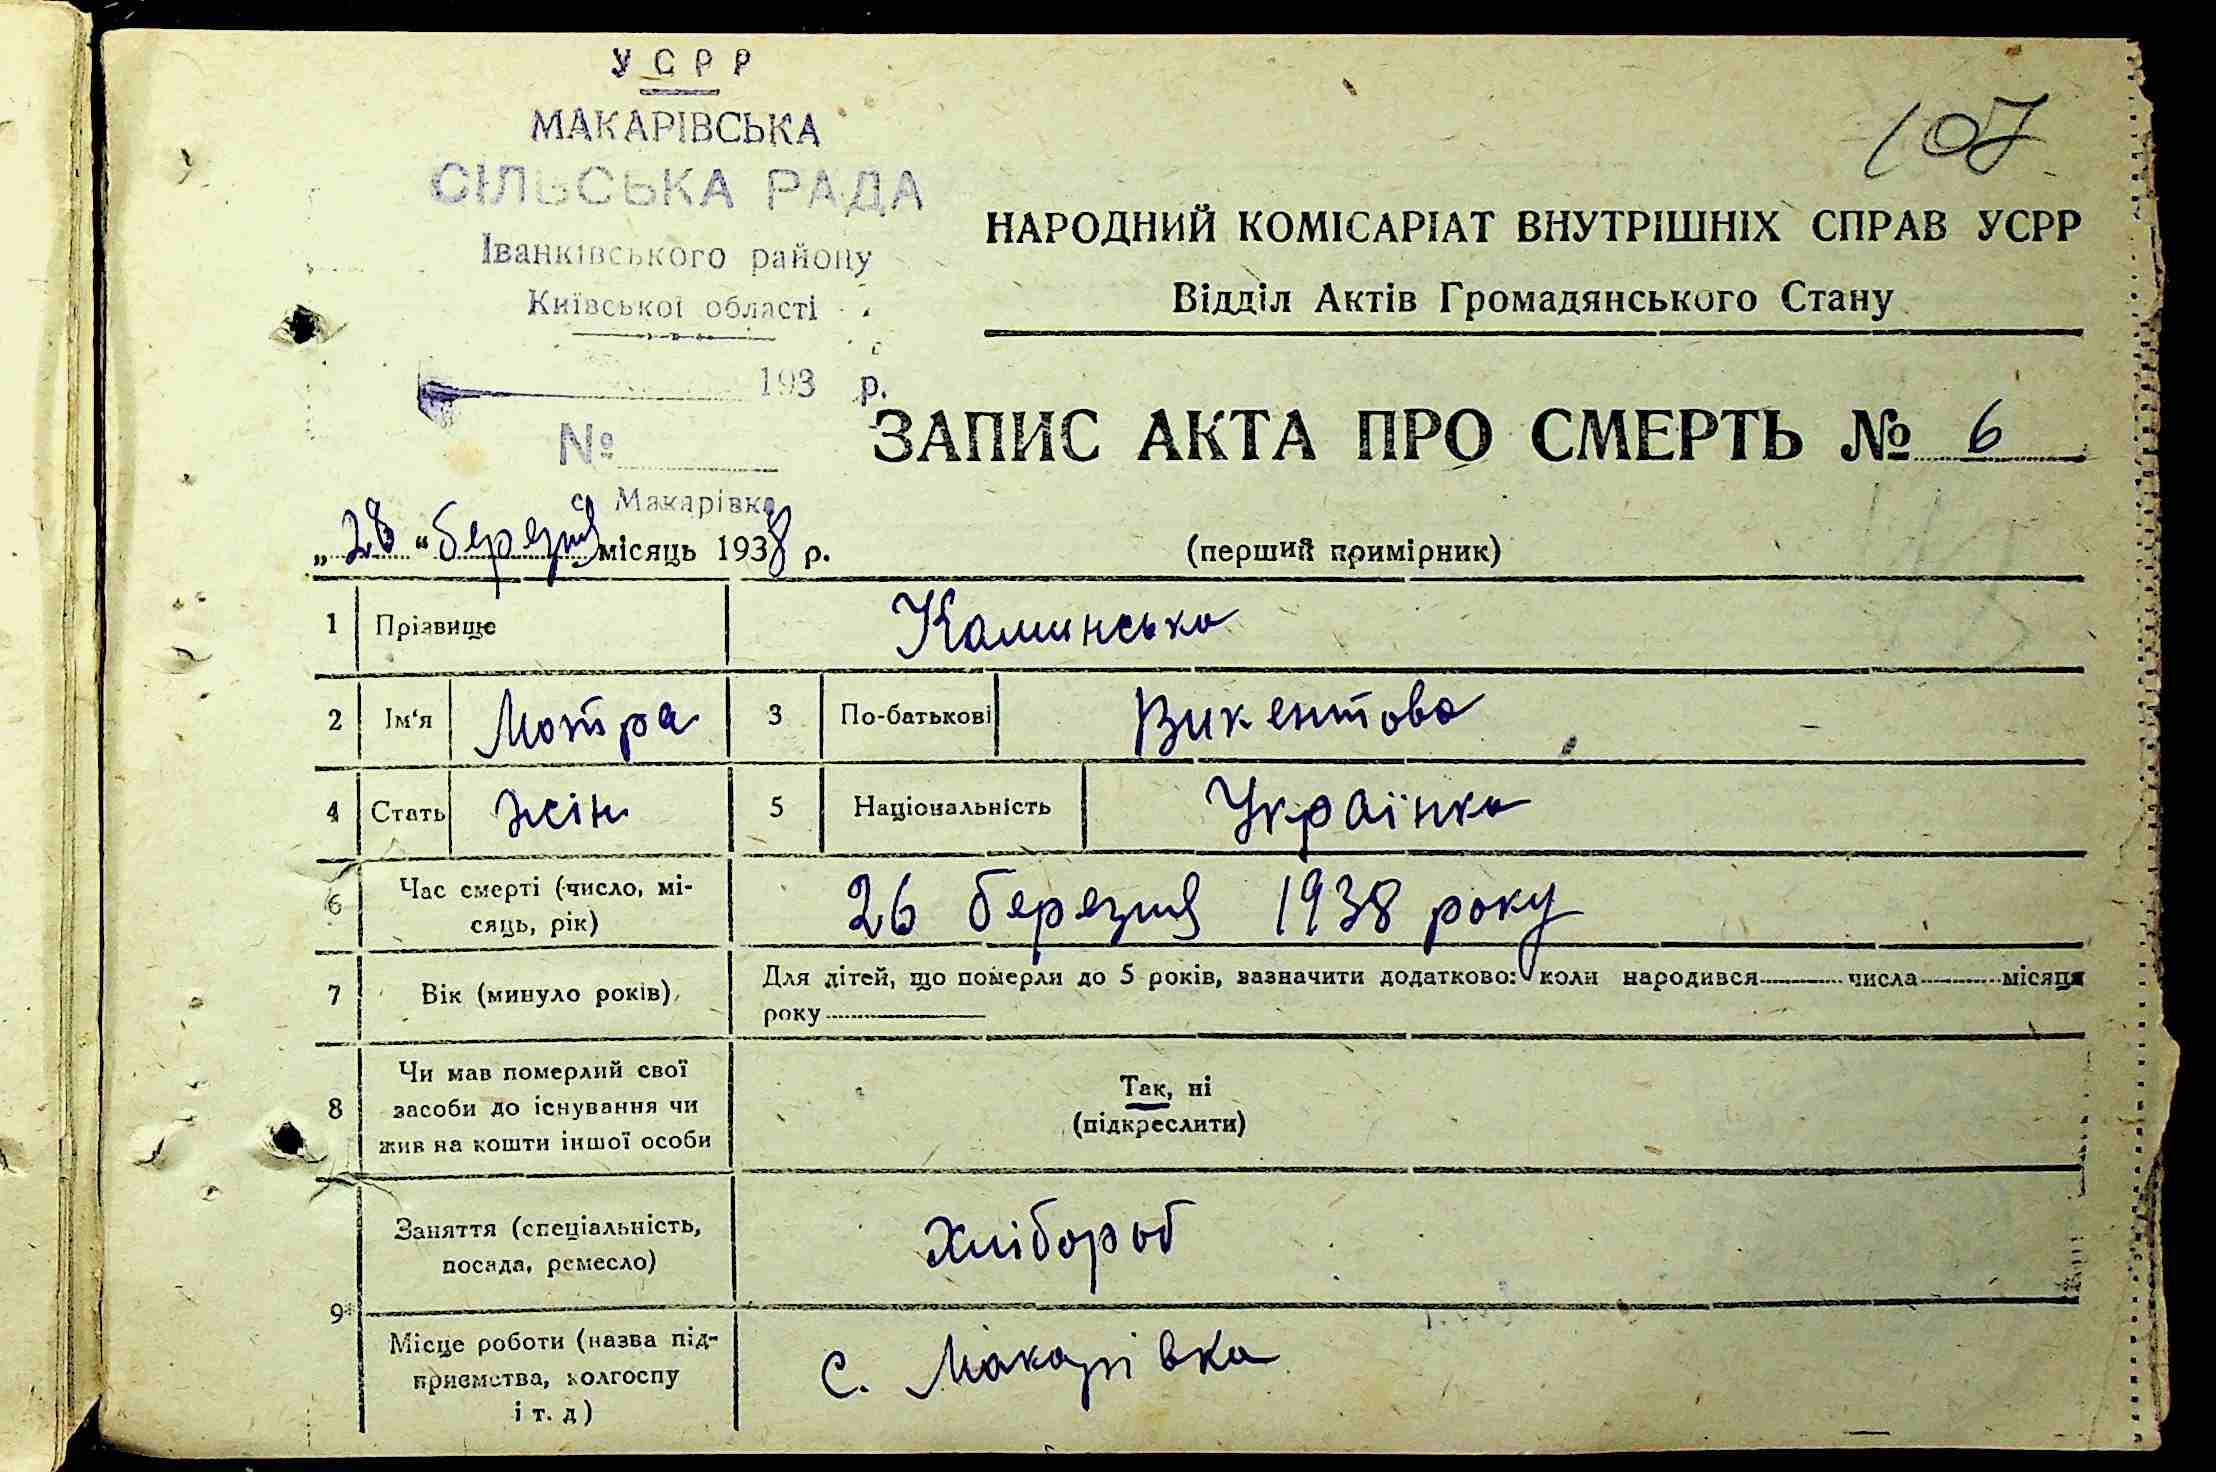 УСРР
МАКАРІВСЬКА
СІЛЬСЬКА РАДА
Іванківського району
Київської області
193 р.
№
с. Макарівка
107
НАРОДНИЙ КОМІСАРІАТ ВНУТРІШНІХ СПРАВ УСРР
Відділ Актів Громадянського Стану
ЗАПИС АКТА ПРО СМЕРТЬ № 6
„28“ березня місяць 1938 р.
(перший примірник)
1 Прізвище Каминська
2 Ім'я Мотра 3 По-батькові Викентова
4 Стать жін 5 Національність Українка
6 Час смерті (число, мі-
сяць, рік) 26 березня 1938 року
7 Вік (минуло років) Для дітей, що померли до 5 років, зазначити додатково: коли народився числа місяця
року
8 Чи мав померлий свої
засоби до існування чи
жив на кошти іншої особи
Так, ні
(підкреслити)
9 Заняття (спеціальність,
посада, ремесло) Хлібороб
Місце роботи (назва під-
приємства, колгоспу
і т. д) с. Макарівка